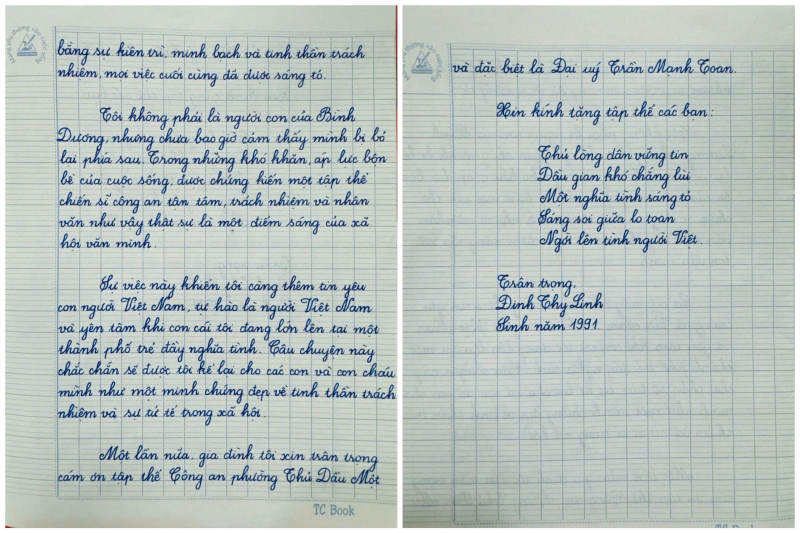 bằng sự kiên trì, minh bạch và tinh thần trách
nhiệm, mọi việc cuối cùng đã được sáng tỏ.
Tôi không phải là người con của Bình
Dương, nhưng chưa bao giờ cảm thấy mình bị bỏ
lại phía sau. Trong những khó khăn, áp lực bộn
bề của cuộc sống, được chứng kiến một tập thể
chiến sĩ công an tận tâm, trách nhiệm và nhân
văn như vậy thật sự là một điểm sáng của xã
hội văn minh.
Sự việc này khiến tôi càng thêm tin yêu
con người Việt Nam, tự hào là người Việt Nam
và yên tâm khi con cái tôi đang lớn lên tại một
thành phố trẻ đầy nghĩa tình. Câu chuyện này
chắc chắn sẽ được tôi kể lại cho các con và con cháu
mình như một minh chứng đẹp về tinh thần trách
nhiệm và sự tử tế trong xã hội.
Một lần nữa, gia đình tôi xin trân trọng
cảm ơn tập thể Công an phường Thủ Dầu Một
TC Book
và đặc biệt là Đại uý Trần Mạnh Toan.
Xin kính tặng tập thể các bạn:
Thủ lòng dân vững tin
Dầu gian khó chẳng lùi
Một nghĩa tình sáng tỏ
Sáng soi giữa lo toan
Ngời lên tình người Việt.
Trân trọng,
Đinh Thy Linh
Sinh năm 1991.